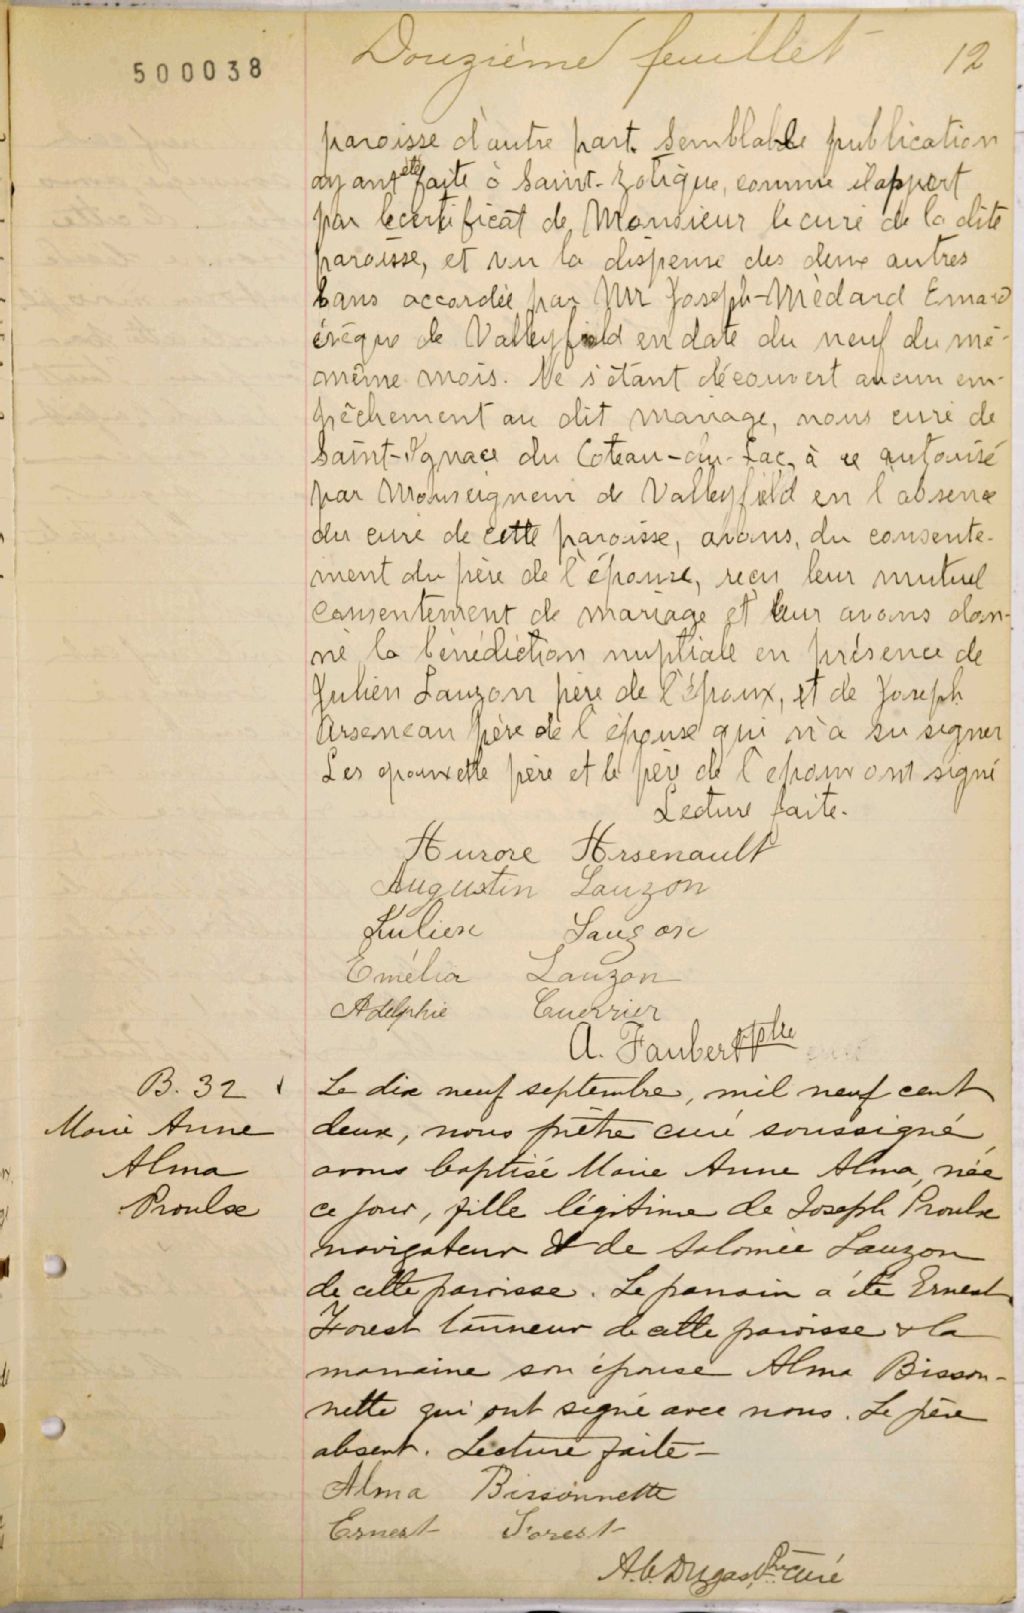 500038
Douzième feuillet 12
paroisse d'autre part. Semblable publication
ayant été faite à Saint-Zotique, comme il appert
par le certificat de Monsieur le curé de la dite
paroisse, et vu la dispense des deux autres
bans accordée par Mr Joseph-Médard Emard
évêque de Valleyfield en date du neuf du mê-
même mois. Ne s'étant découvert aucun em-
pêchement au dit mariage, nous curé de
Saint-Ignace du Coteau-du-Lac, à ce autorisé
par Monseigneur de Valleyfield en l'absence
du curé de cette paroisse, avons, du consente-
ment du père de l'épouse, reçu leur mutuel
consentement de mariage et leur avons don-
né la bénédiction nuptiale en présence de
Julien Lauzon père de l'époux, et de Joseph
Arseneau père de l'épouse qui n'a su signer
Les epoux et le père de l'epoux ont signé
Lecture faite.
Aurore Arsenault
Augustin Lauzon
Julien Lauzon
Emélia Lauzon
Adelphie Cuerrier
A. Faubert ptre
B. 32
Marie Anne
Alma
Proulx
Le dix neuf septembre, mil neuf cent
deux, nous prêtre curé soussigné
avons baptisé Marie Anne Alma, née
ce jour, fille légitime de Joseph Proulx
navigateur & de Salomée Lauzon
de cette paroisse. Le parrain a été Ernest
Forest tanneur de cette paroisse & la
marraine son épouse Alma Bisson-
nette qui ont signé avec nous. Le père
absent. Lecture faite—
Alma Bissonnette
Ernest Forest
A.C. Dugas, Ptre curé